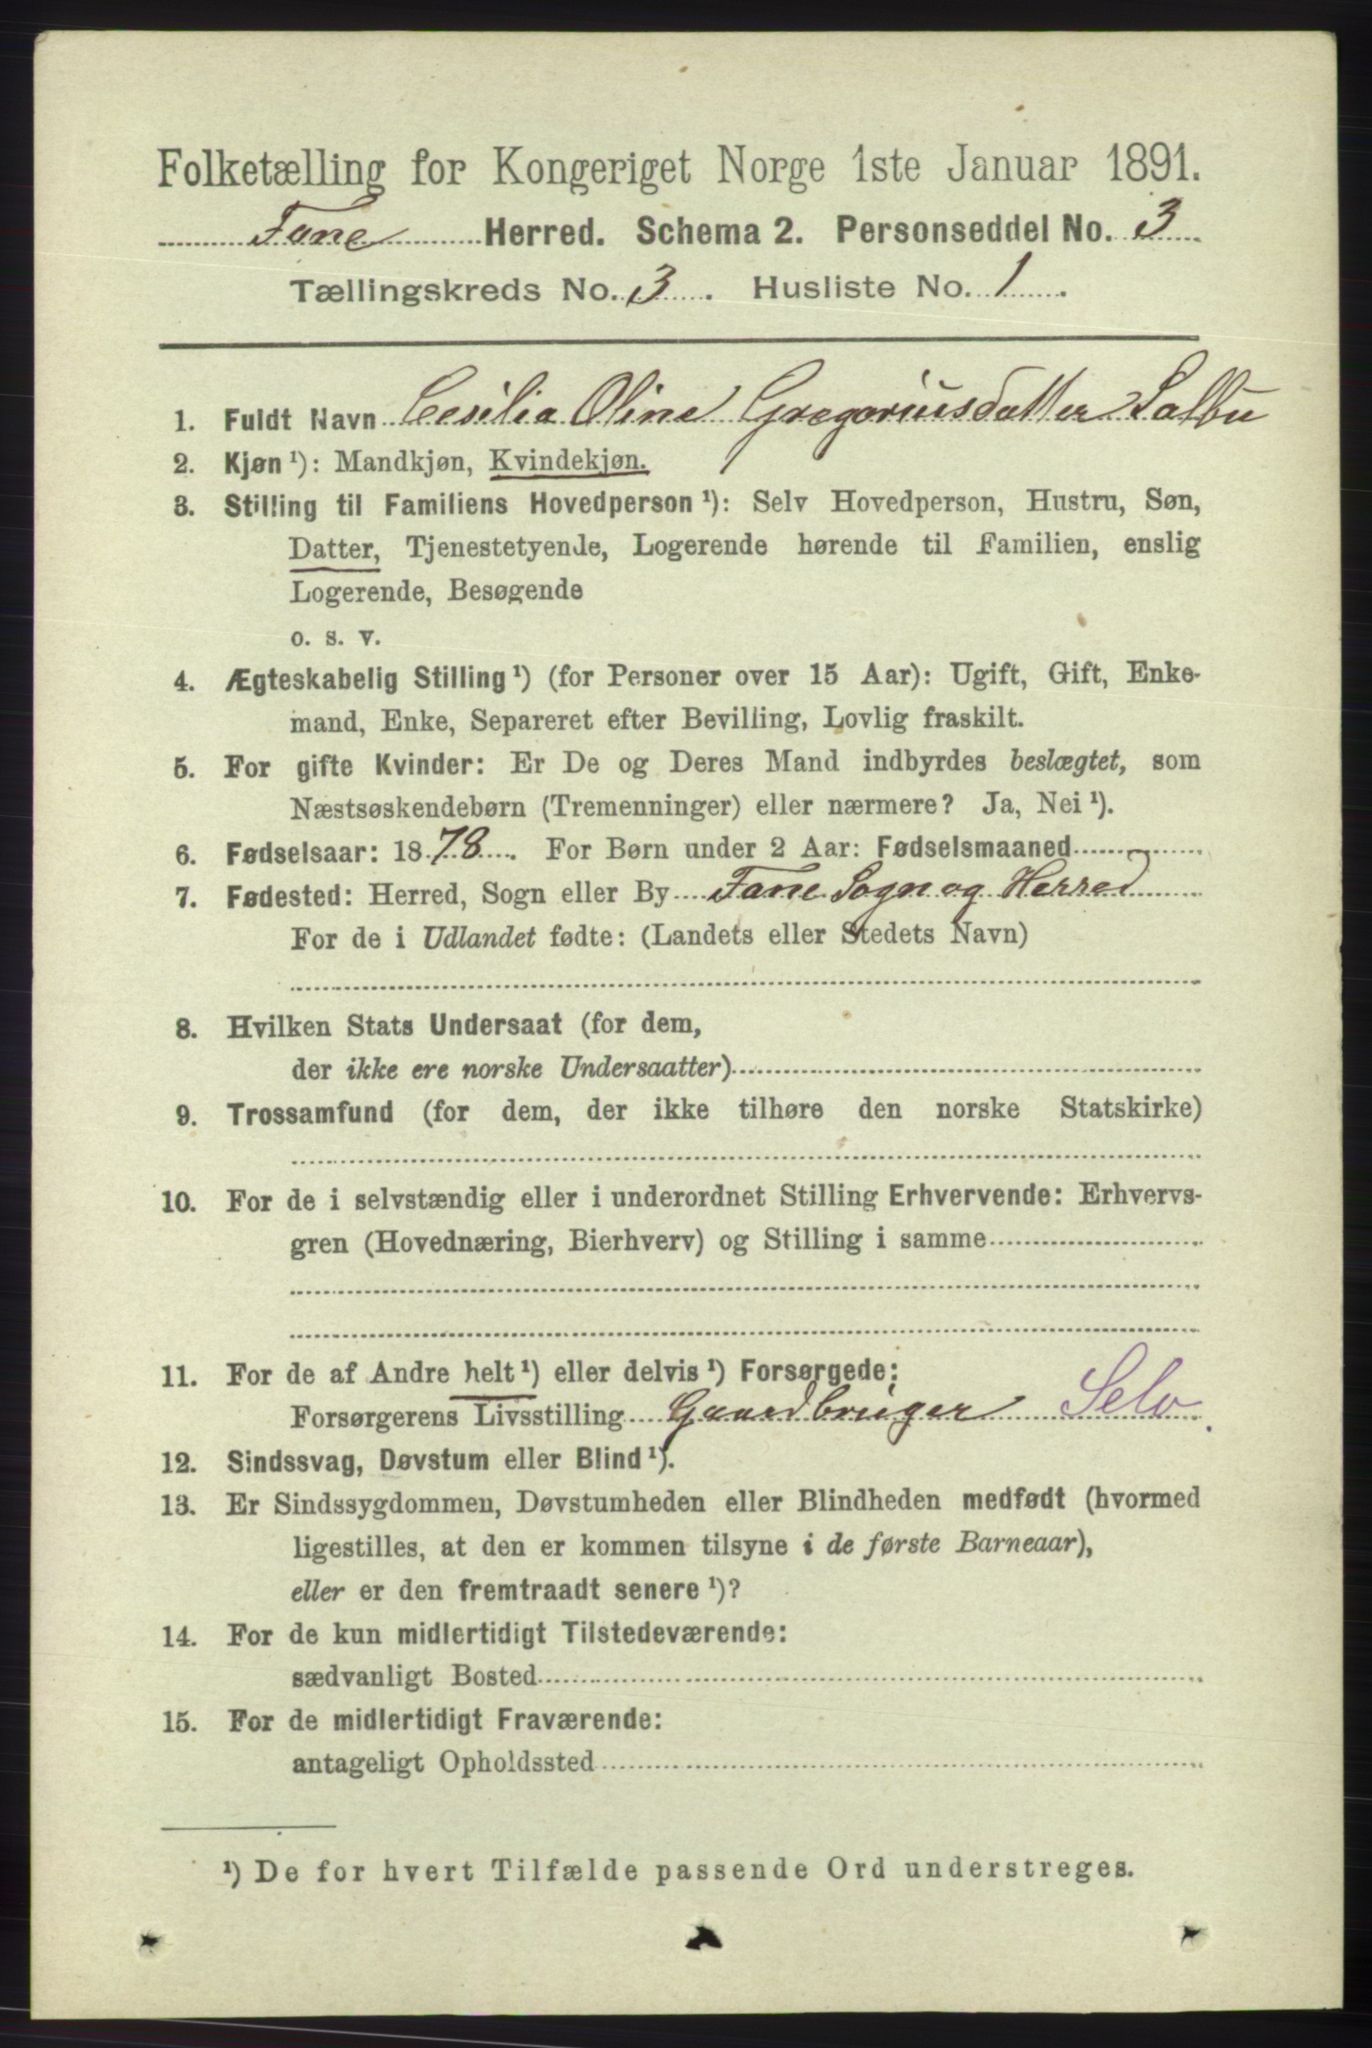 Folketælling for Kongeriget Norge 1ste Januar 1891.
Fane Herred. Schema 2. Personseddel No. 3
Tællingskreds No. 3. Husliste No. 1.
1. Fuldt Navn Cesilia Oline Gregoriusdatter Salbu
2. Kjøn ¹): Mandkjøn, Kvindekjøn.
3. Stilling til Familiens Hovedperson ¹): Selv Hovedperson, Hustru, Søn,
Datter, Tjenestetyende, Logerende hørende til Familien, enslig
Logerende, Besøgende
o. s. v.
4. Ægteskabelig Stilling ¹) (for Personer over 15 Aar): Ugift, Gift, Enke-
mand, Enke, Separeret efter Bevilling, Lovlig fraskilt.
5. For gifte Kvinder: Er De og Deres Mand indbyrdes beslægtet, som
Næstsøskendebørn (Tremenninger) eller nærmere? Ja, Nei ¹).
6. Fødselsaar: 1878. For Børn under 2 Aar: Fødselsmaaned
7. Fødested: Herred, Sogn eller By Fane Sogn og Herred
For de i Udlandet fødte: (Landets eller Stedets Navn)
8. Hvilken Stats Undersaat (for dem,
der ikke ere norske Undersaatter)
9. Trossamfund (for dem, der ikke tilhøre den norske Statskirke)
10. For de i selvstændig eller i underordnet Stilling Erhvervende: Erhvervs-
gren (Hovednæring, Bierhverv) og Stilling i samme
11. For de af Andre helt ¹) eller delvis ¹) Forsørgede:
Forsørgerens Livsstilling Gaardbruger Selv.
12. Sindssvag, Døvstum eller Blind ¹).
13. Er Sindssygdommen, Døvstumheden eller Blindheden medfødt (hvormed
ligestilles, at den er kommen tilsyne i de første Barneaar),
eller er den fremtraadt senere ¹)?
14. For de kun midlertidigt Tilstedeværende:
sædvanligt Bosted
15. For de midlertidigt Fraværende:
antageligt Opholdssted
¹) De for hvert Tilfælde passende Ord understreges.